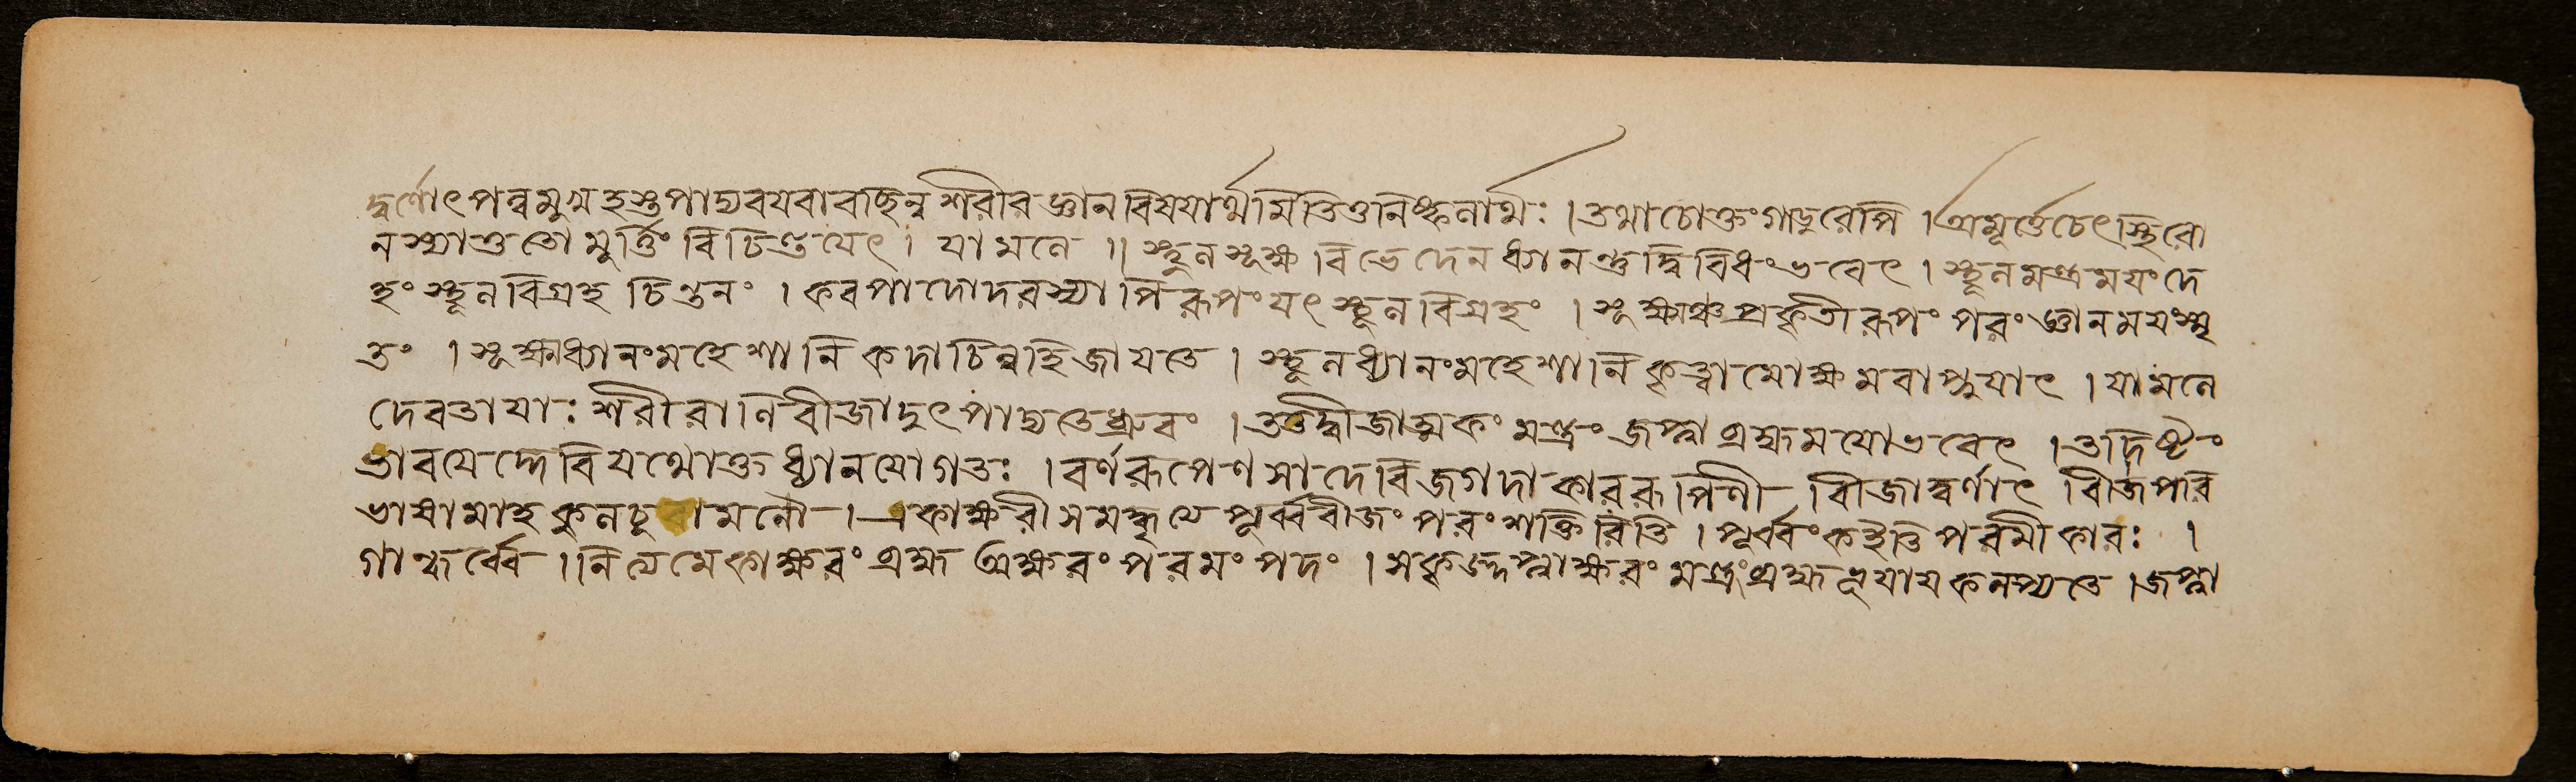 দ্বর্ণোৎপন্নমুখহস্তপাদ্যবয়বাবচ্ছিন্ন শরীর জ্ঞান বিষয়ার্থমিতিতুনিষ্কলার্থঃ । তথাচোক্তং গান্ধর্বেপি । অমূর্ত্তেচেৎস্থিরো
নস্যাত্ততো মূর্ত্তিং বিচিন্তয়েৎ । যামলে ॥ স্থূলসূক্ষ্ম বিভেদেন ধ্যানন্তুদ্বিবিধংভবেৎ । স্থূলমন্ত্রময়ংদে
হং স্থূলবিগ্রহ চিন্তনং । করপাদোদরস্যাপি রূপংযৎস্থূলবিগ্রহং । সূক্ষ্মঞ্চপ্রকৃতীরূপং পরং জ্ঞানময়ংস্মৃ
তং । সূক্ষ্মধ্যানংমহেশানি কদাচিন্নহিজায়তে । স্থূলধ্যানংমহেশানি কৃত্বামোক্ষমবাপ্নুয়াৎ । যামলে
দেবতায়াঃ শরীরানি বীজাদুৎপাদ্যতেধ্রুবং । তত্তদ্বীজাত্মকং মন্ত্রং জপ্ত্বা ব্রহ্মময়োভবেৎ । তদিষ্টং
ভাবয়েদ্দেবি যথোক্ত ধ্যানযোগতঃ । বর্ণরূপেণ সা দেবি জগদাকাররূপিণী বীজাদ্বর্ণাৎ বীজপরি
ভাষামাহ কুলচু মনৌ । একাক্ষরী সমস্তুথে পূর্ব্ববীজং পরংশক্তিরিতি । পূর্ব্বং কইতি পরমীকারঃ ।
গান্ধর্ব্বে । নিত্যমেকাক্ষরং ব্রহ্ম অক্ষরং পরমং পদং । সকৃজ্জপ্ত্বাক্ষরং মন্ত্রংব্রহ্মভূয়ায়কল্প্যতে । জপ্ত্বা